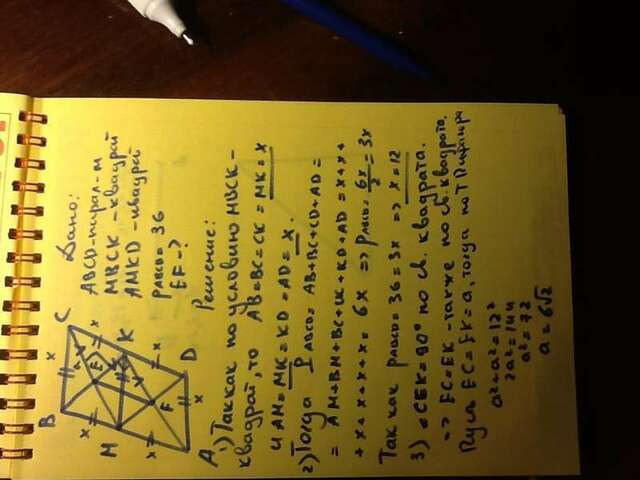 B x C
x E x
M K
x F x
A x D
Дано:
ABCD-парал-м
MBCK - квадрат
AMKD - квадрат
pABCD = 36
EF - ?
Решение:
1) Так как по условию MBCK -
квадрат, то AB=BC=CK=MK=x
и AM=MK=KD=AD=x.
2) Тогда PABCD = AB+BC+CD+AD=
= AM+BM+BC+CK+KD+AD = x+x+
+x+x+x+x = 6x => pABCD = 6x/2 = 3x
Так как pABCD=36=3x => x=12
3) ∠CEK=90° по св. квадрата.
=> EC=EK - также по св. квадрата.
Пусть EC=EK=a, тогда по Т Пифагора
a²+a²=12²
2a²=144
a²=72
a=6√2